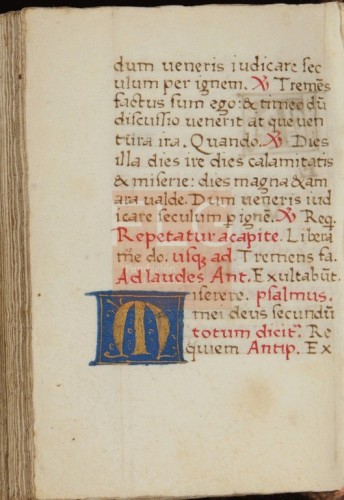 dum veneris iudicare sec
ulum per ignem. ℣ Tremẽs
factus sum ego: & timeo dũ
discussio venerit at que ven
tura ira. Quando. ℣ Dies
illa dies ire dies calamitatis
& miserie: dies magna & am
ara ualde. Dum veneris iud
icare seculum ꝑ ignẽ. ℣ Req̃.
Repetatur a capite. Libera
me do. usq; ad. Tremens fa.
Ad laudes Ant. Exultabũt.
Miserere. psalmus.
mei deus secundũ
totum dicit᷑. Re
quiem Antip. Ex